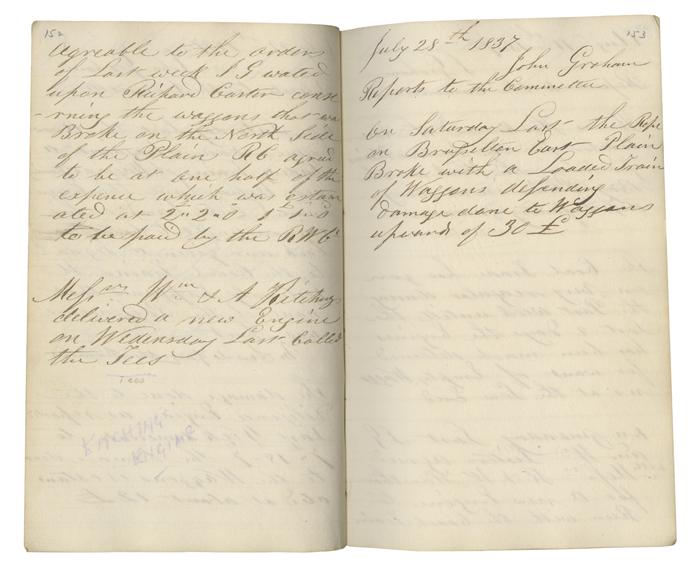 152
Agreable to the orders
of Last week J G wated
upon Richard Carter conce
-rning the waggons that
Broke on the North Side
of the Plain R C agred
to be at one half of the
expence which was estam
ated at 2"2"0 1 1"0
to be paid by the R W Co
Messrs Wm & A Kitching
delivered a new Engine
on Wedensday Last Called
the Tees
Tees
KITCHING'S
ENGINE
153
July 28th 1837
John Graham
Reports to the Committee
on Saturday Last the Rope
on Brusselton East Plain
Broke with a Loaded Train
of Waggons depending
damage done to Waggons
upwards of 30 £